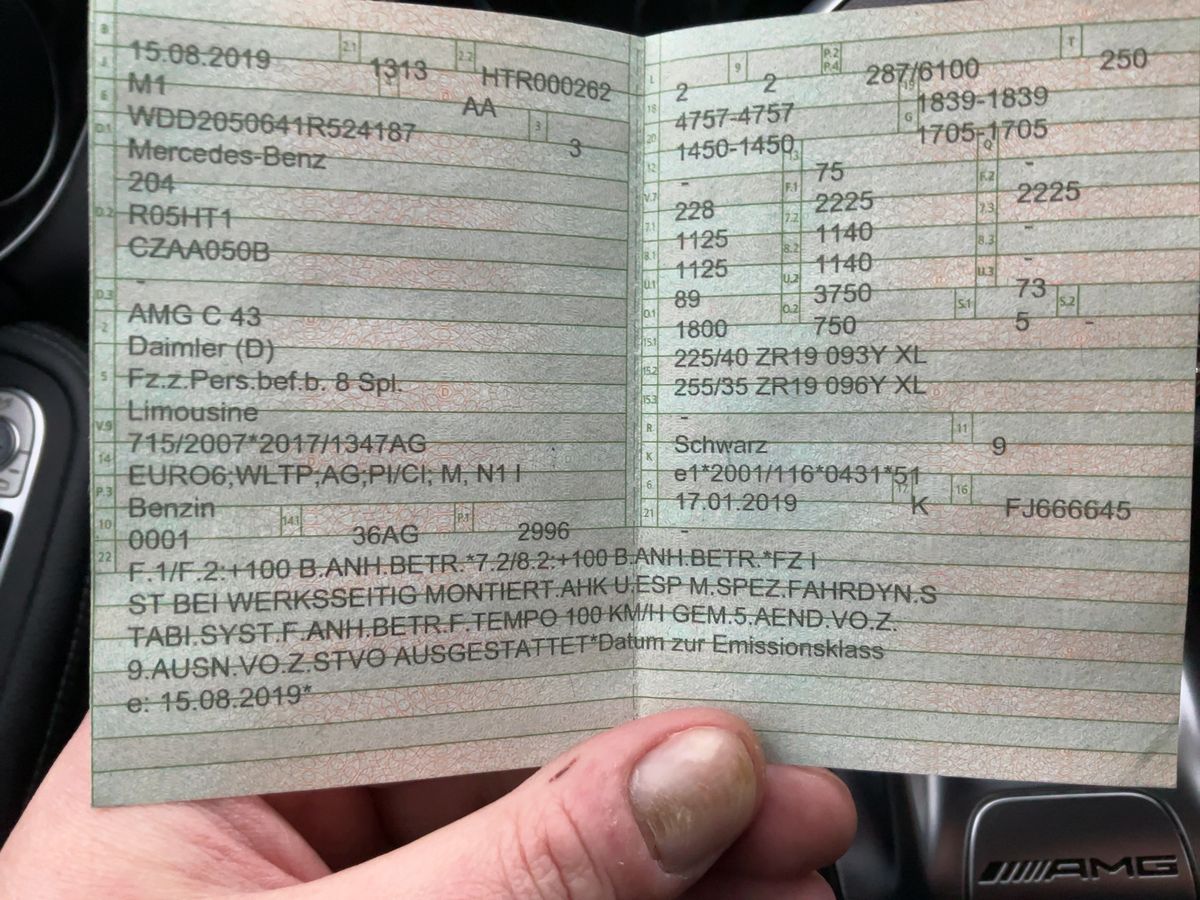 B 15.08.2019 2.1 1313 2.2 HTR000262
J M1 AA
E WDD2050641R524187 3 3
D.1 Mercedes-Benz
204
D.2 R05HT1
CZAA050B
-
D.3 AMG C 43
2 Daimler (D)
5 Fz.z.Pers.bef.b. 8 Spl.
Limousine
V.9 715/2007*2017/1347AG
14 EURO6;WLTP;AG;PI/CI; M, N1 I
P.3 Benzin
10 0001 14.1 36AG P.1 2996
L 2 9 2 P.2 P.4 287/6100 T 250
18 4757-4757 19 1839-1839
20 1450-1450 G 1705-1705
12 - 13 75 Q -
V.7 228 F.1 2225 F.2 2225
7.1 1125 7.2 1140 7.3 -
8.1 1125 8.2 1140 8.3 -
U.1 89 U.2 3750 U.3 73
O.1 1800 O.2 750 S.1 5 S.2 -
15.1 225/40 ZR19 093Y XL
15.2 255/35 ZR19 096Y XL
15.3 -
R Schwarz 11 9
K e1*2001/116*0431*51
6 17.01.2019 17 K 16 FJ666645
21 -
22 F.1/F.2:+100 B.ANH.BETR.*7.2/8.2:+100 B.ANH.BETR.*FZ I
ST BEI WERKSSEITIG MONTIERT.AHK U.ESP M.SPEZ.FAHRDYN.S
TABI.SYST.F.ANH.BETR.F.TEMPO 100 KM/H GEM.5.AEND.VO.Z.
9.AUSN.VO.Z.STVO AUSGESTATTET*Datum zur Emissionsklass
e: 15.08.2019*
AMG